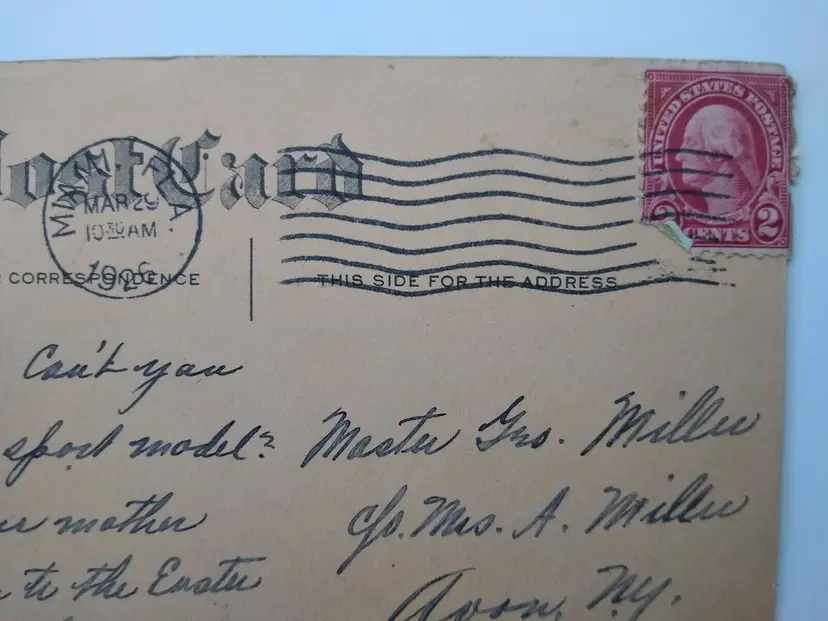 Post Card
UNITED STATES POSTAGE
2 CENTS
MAR 29
10 30 AM
CORRESPONDENCE
THIS SIDE FOR THE ADDRESS
Can't you
sport model?
mother
to the Easter
Master Geo. Miller
c/o. Mrs. A. Miller
Avon, N.Y.